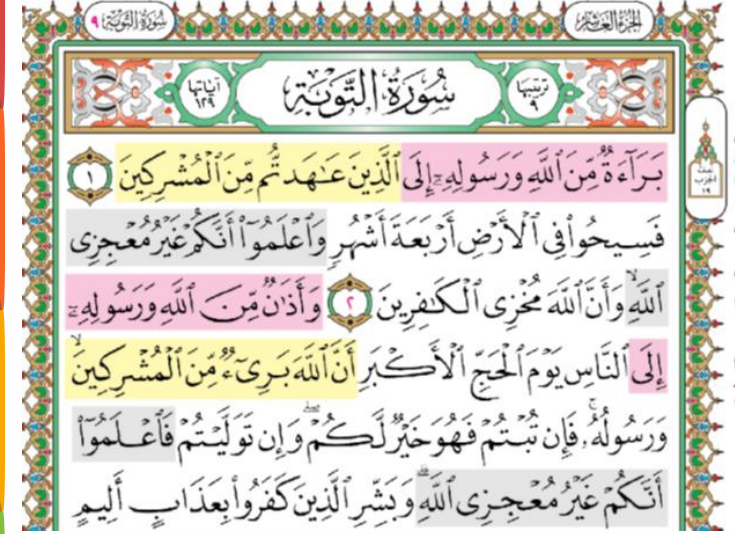 سُورَةُ التَّوْبَةِ ٩
الجُزْءُ العَاشِرُ
آيَاتُهَا ١٢٩
سُورَةُ التَّوْبَةِ
تَرْتِيبُهَا ٩
نصف الحزب ١٩
بَرَآءَةٌ مِّنَ ٱللَّهِ وَرَسُولِهِۦٓ إِلَى ٱلَّذِينَ عَٰهَدتُّم مِّنَ ٱلْمُشْرِكِينَ ١
فَسِيحُوا۟ فِى ٱلْأَرْضِ أَرْبَعَةَ أَشْهُرٍ وَٱعْلَمُوٓا۟ أَنَّكُمْ غَيْرُ مُعْجِزِى
ٱللَّهِ ۙ وَأَنَّ ٱللَّهَ مُخْزِى ٱلْكَٰفِرِينَ ٢ وَأَذَٰنٌ مِّنَ ٱللَّهِ وَرَسُولِهِۦٓ
إِلَى ٱلنَّاسِ يَوْمَ ٱلْحَجِّ ٱلْأَكْبَرِ أَنَّ ٱللَّهَ بَرِىٓءٌ مِّنَ ٱلْمُشْرِكِينَ ۙ
وَرَسُولُهُۥ ۚ فَإِن تُبْتُمْ فَهُوَ خَيْرٌ لَّكُمْ ۖ وَإِن تَوَلَّيْتُمْ فَٱعْلَمُوٓا۟
أَنَّكُمْ غَيْرُ مُعْجِزِى ٱللَّهِ ۗ وَبَشِّرِ ٱلَّذِينَ كَفَرُوا۟ بِعَذَابٍ أَلِيمٍ